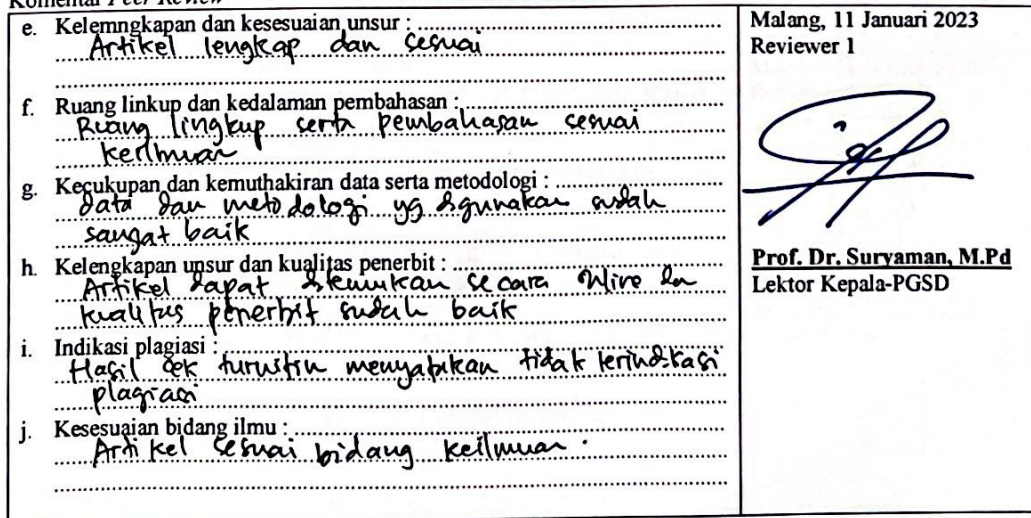 Komentar Peer Review
e. Kelemngkapan dan kesesuaian unsur :
Artikel lengkap dan sesuai
f. Ruang linkup dan kedalaman pembahasan :
Ruang lingkup serta pembahasan sesuai
keilmuan
g. Kecukupan dan kemuthakiran data serta metodologi :
data dan metodologi yg digunakan sudah
sangat baik
h. Kelengkapan unsur dan kualitas penerbit :
Artikel dapat ditemukan secara online dan
kualitas penerbit sudah baik
i. Indikasi plagiasi :
Hasil cek turnitin menyatakan tidak terindikasi
plagiasi
j. Kesesuaian bidang ilmu :
Artikel sesuai bidang keilmuan.
Malang, 11 Januari 2023
Reviewer 1
Prof. Dr. Suryaman, M.Pd
Lektor Kepala-PGSD